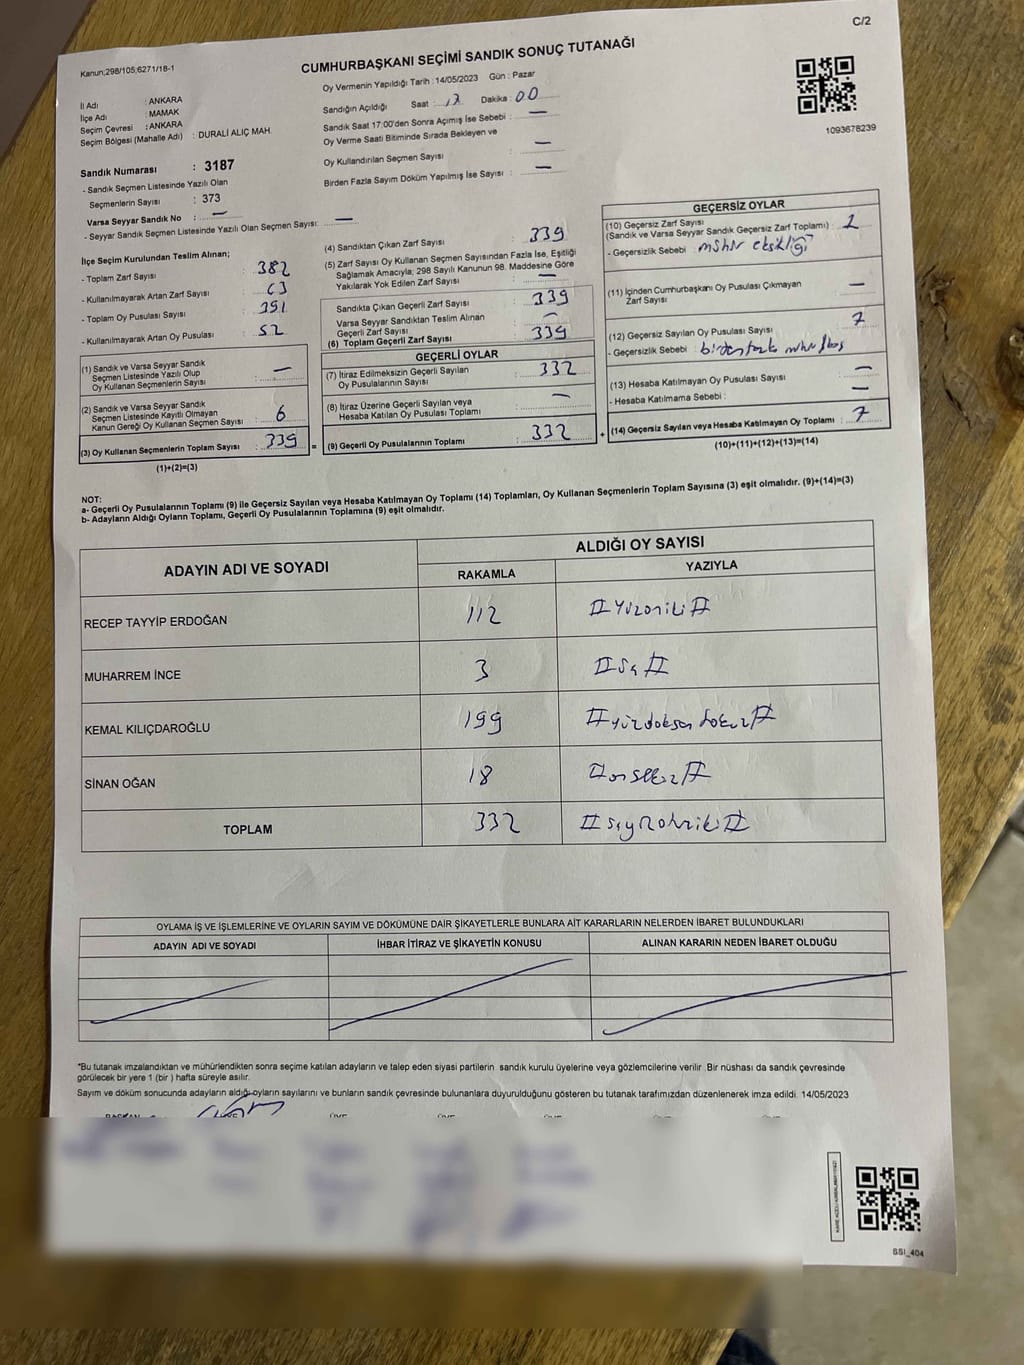 C/2
Kanun;298/105;6271/18-1
CUMHURBAŞKANI SEÇİMİ SANDIK SONUÇ TUTANAĞI
1093678239
İl Adı : ANKARA
İlçe Adı : MAMAK
Seçim Çevresi : ANKARA
Seçim Bölgesi (Mahalle Adı) : DURALİ ALIÇ MAH.
Sandık Numarası : 3187
- Sandık Seçmen Listesinde Yazılı Olan
Seçmenlerin Sayısı : 373
Varsa Seyyar Sandık No : —
- Seyyar Sandık Seçmen Listesinde Yazılı Olan Seçmen Sayısı: —
Oy Vermenin Yapıldığı Tarih : 14/05/2023 Gün : Pazar
Sandığın Açıldığı Saat : 17 Dakika : 00
Sandık Saat 17:00'den Sonra Açımış İse Sebebi : —
Oy Verme Saati Bitiminde Sırada Bekleyen ve
Oy Kullandırılan Seçmen Sayısı : —
Birden Fazla Sayım Döküm Yapılmış İse Sayısı : —
İlçe Seçim Kurulundan Teslim Alınan;
- Toplam Zarf Sayısı : 382
- Kullanılmayarak Artan Zarf Sayısı :
- Toplam Oy Pusulası Sayısı : 391
- Kullanılmayarak Artan Oy Pusulası : 52
(1) Sandık ve Varsa Seyyar Sandık
Seçmen Listesinde Yazılı Olup
Oy Kullanan Seçmenlerin Sayısı : —
(2) Sandık ve Varsa Seyyar Sandık
Seçmen Listesinde Kayıtlı Olmayan
Kanun Gereği Oy Kullanan Seçmen Sayısı : 6
(3) Oy Kullanan Seçmenlerin Toplam Sayısı : 339 =
(1)+(2)=(3)
(4) Sandıktan Çıkan Zarf Sayısı : 339
(5) Zarf Sayısı Oy Kullanan Seçmen Sayısından Fazla İse, Eşitliği
Sağlamak Amacıyla; 298 Sayılı Kanunun 98. Maddesine Göre
Yakılarak Yok Edilen Zarf Sayısı : —
Sandıkta Çıkan Geçerli Zarf Sayısı : 339
Varsa Seyyar Sandıktan Teslim Alınan
Geçerli Zarf Sayısı : —
(6) Toplam Geçerli Zarf Sayısı : 339
GEÇERLİ OYLAR
(7) İtiraz Edilmeksizin Geçerli Sayılan
Oy Pusulalarının Sayısı : 332
(8) İtiraz Üzerine Geçerli Sayılan veya
Hesaba Katılan Oy Pusulası Toplamı : —
(9) Geçerli Oy Pusulalarının Toplamı : 332 +
GEÇERSİZ OYLAR
(10) Geçersiz Zarf Sayısı
(Sandık ve Varsa Seyyar Sandık Geçersiz Zarf Toplamı) :
- Geçersizlik Sebebi : mühür eksikliği
(11) İçinden Cumhurbaşkanı Oy Pusulası Çıkmayan
Zarf Sayısı : —
(12) Geçersiz Sayılan Oy Pusulası Sayısı : 7
- Geçersizlik Sebebi : birden fazla
(13) Hesaba Katılmayan Oy Pusulası Sayısı : —
- Hesaba Katılmama Sebebi : —
(14) Geçersiz Sayılan veya Hesaba Katılmayan Oy Toplamı : 7
(10)+(11)+(12)+(13)=(14)
NOT:
a- Geçerli Oy Pusulalarının Toplamı (9) ile Geçersiz Sayılan veya Hesaba Katılmayan Oy Toplamı (14) Toplamları, Oy Kullanan Seçmenlerin Toplam Sayısına (3) eşit olmalıdır. (9)+(14)=(3)
b- Adayların Aldığı Oyların Toplamı, Geçerli Oy Pusulalarının Toplamına (9) eşit olmalıdır.
ADAYIN ADI VE SOYADI
ALDIĞI OY SAYISI
RAKAMLA YAZIYLA
RECEP TAYYİP ERDOĞAN 112 #Yüzoniki#
MUHARREM İNCE 3 #üç#
KEMAL KILIÇDAROĞLU 199 #yüzdoksan dokuz#
SİNAN OĞAN 18 #onsekiz#
TOPLAM 332 #üçyüzotuziki#
OYLAMA İŞ VE İŞLEMLERİNE VE OYLARIN SAYIM VE DÖKÜMÜNE DAİR ŞİKAYETLERLE BUNLARA AİT KARARLARIN NELERDEN İBARET BULUNDUKLARI
ADAYIN ADI VE SOYADI İHBAR İTİRAZ VE ŞİKAYETİN KONUSU ALINAN KARARIN NEDEN İBARET OLDUĞU
*Bu tutanak imzalandıktan ve mühürlendikten sonra seçime katılan adayların ve talep eden siyasi partilerin sandık kurulu üyelerine veya gözlemcilerine verilir .Bir nüshası da sandık çevresinde
görülecek bir yere 1 (bir ) hafta süreyle asılır.
Sayım ve döküm sonucunda adayların aldığı oyların sayılarını ve bunların sandık çevresinde bulunanlara duyurulduğunu gösteren bu tutanak tarafımızdan düzenlenerek imza edildi. 14/05/2023
SSI_404